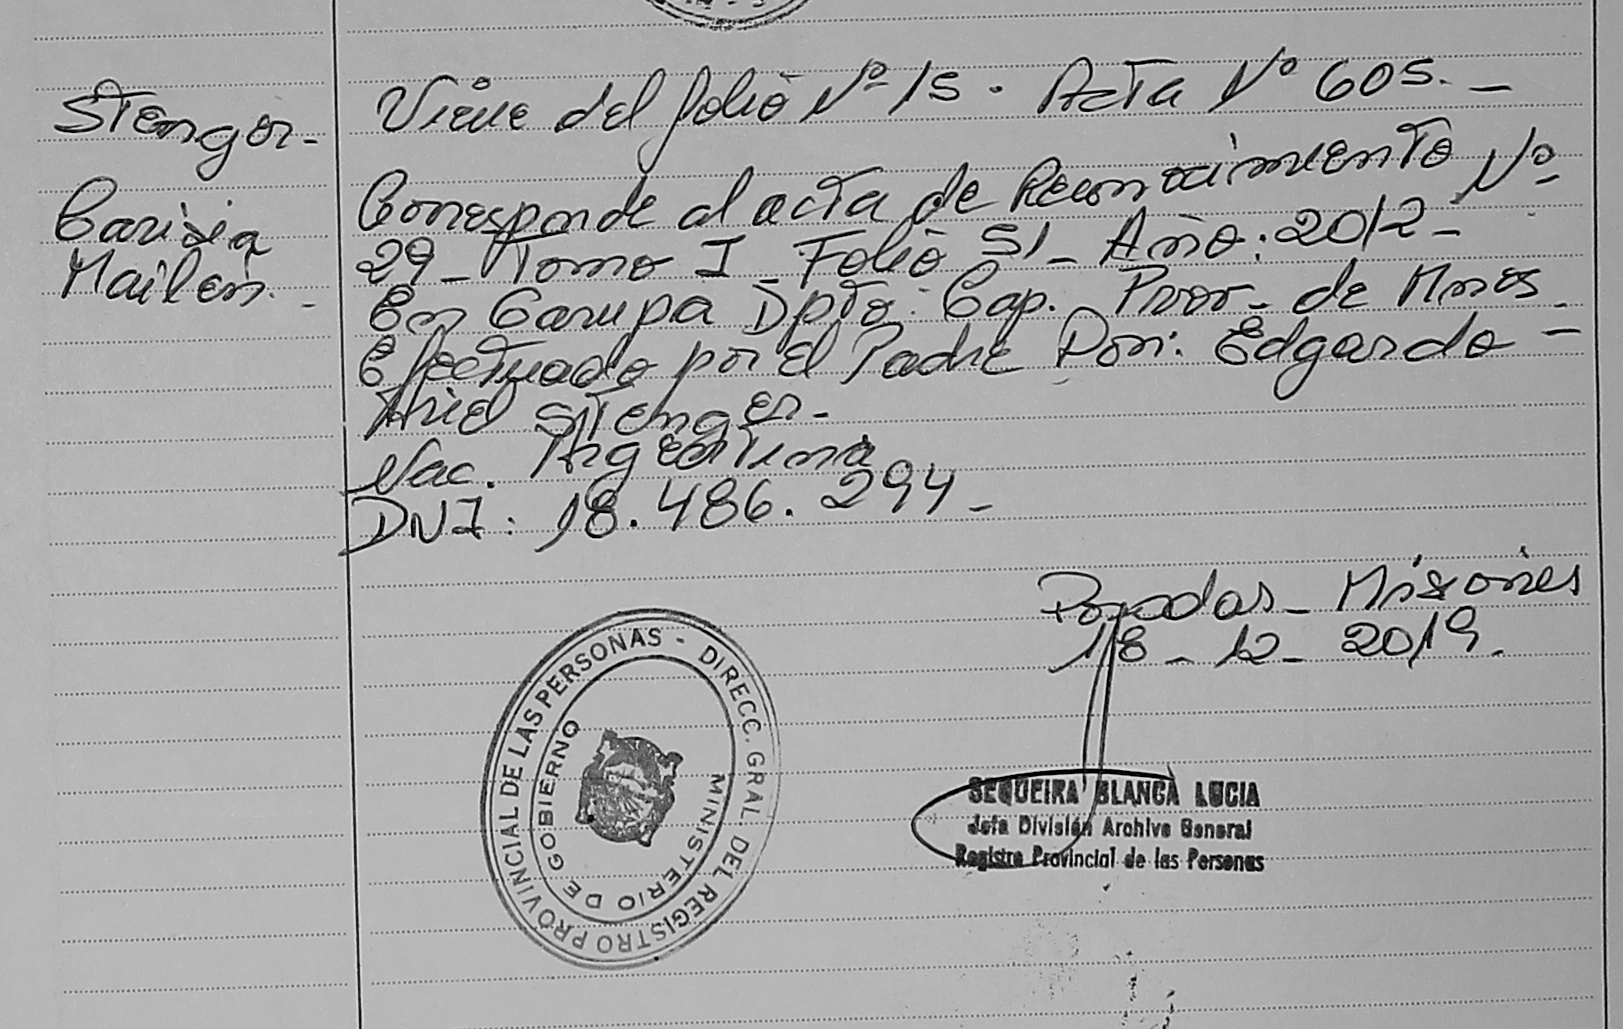 Stenger.-
Carisia
Mailen.-
Viene del folio Nº 15. Acta Nº 605.-
Corresponde al acta de Reconocimiento Nº
29- Tomo I Folio 51- Año: 2012-
En Garupa Dpto. Cap. Prov. de Mnes.
Efectuado por el Padre Don: Edgardo -
Ariel Stenger.-
Nac. Argentina
DNI: 18.486.294-
Posadas- Misiones
18- 12- 2019.
DIRECC. GRAL. DEL REGISTRO PROVINCIAL DE LAS PERSONAS -
MINISTERIO DE GOBIERNO
SEQUEIRA BLANCA LUCIA
Jefa División Archivo General
Registro Provincial de las Personas